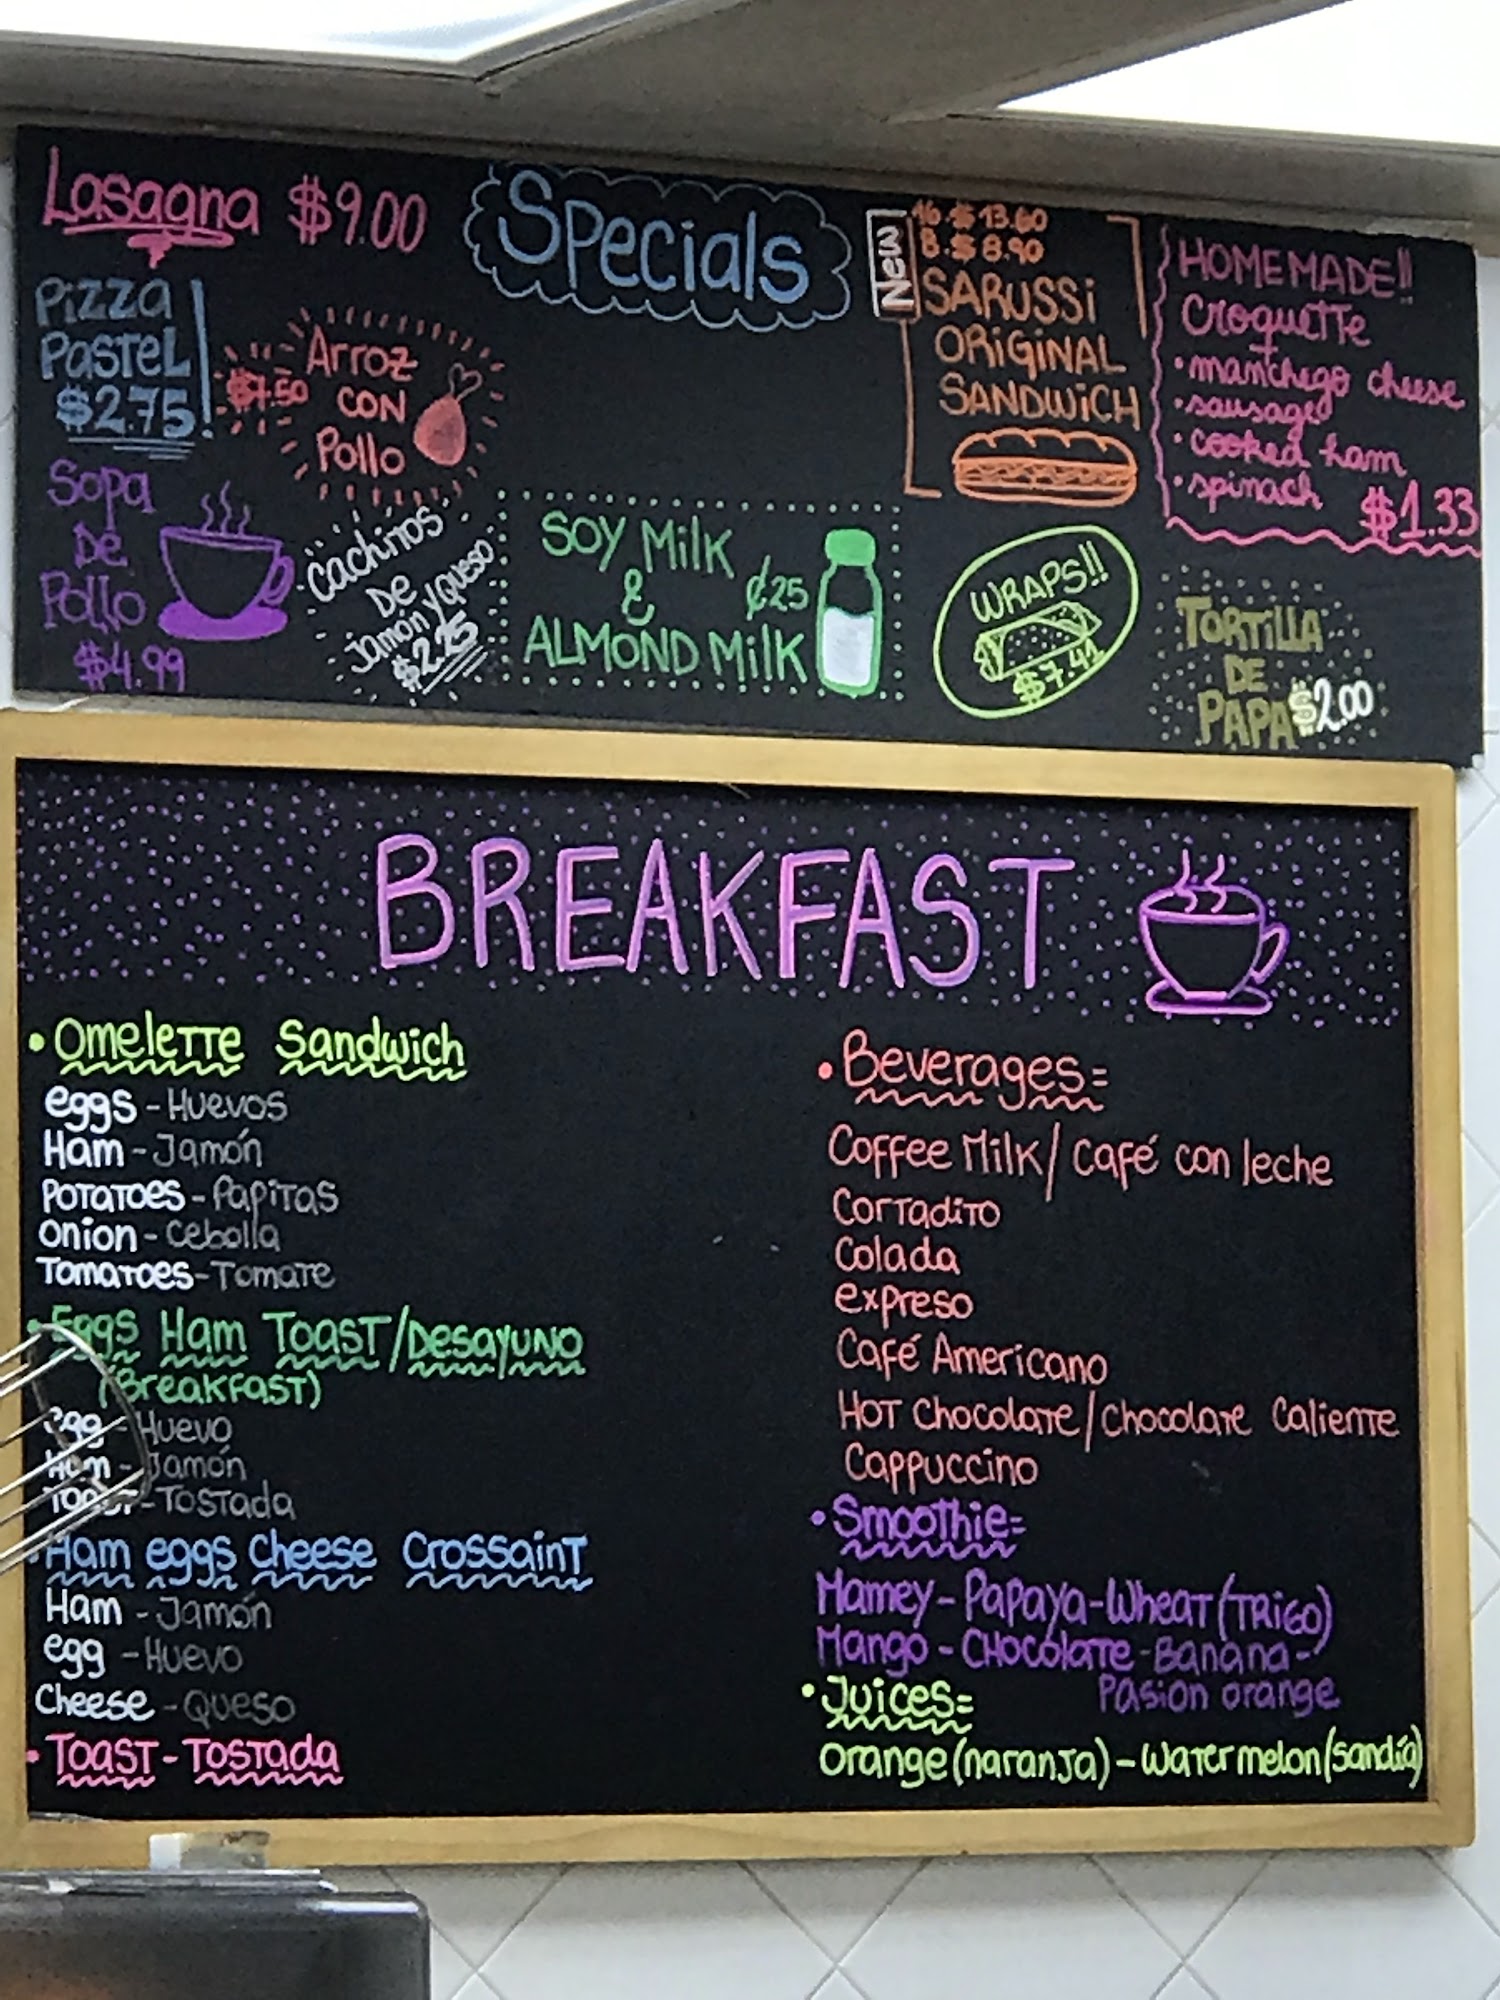 Lasagna $9.00
Pizza
Pastel
$2.75
$7.50
Arroz
con
Pollo
Sopa
De
Pollo
$4.99
Cachitos
De
Jamón y Queso
$2.25
Specials
Soy Milk
&
¢25
ALMOND Milk
New
16. $13.60
8. $8.90
SARUSSi
ORiGiNAL
SANDWiCH
WRAPS!!
$7.41
HOMEMADE!!
Croquette
•manchego cheese
•sausage
•cooked ham
•spinach
$1.33
TORTiLLA
DE
PAPA $2.00
BREAKFAST
• Omelette Sandwich
eggs - Huevos
Ham - Jamón
Potatoes - Papitas
Onion - Cebolla
Tomatoes - Tomate
• Eggs Ham Toast/Desayuno
(Breakfast)
egg - Huevo
Ham - Jamón
Toast - Tostada
• Ham eggs Cheese Crossaint
Ham - Jamón
egg - Huevo
Cheese - Queso
• Toast - Tostada
• Beverages=
Coffee Milk/ Café con leche
Cortadito
Colada
expreso
Café Americano
Hot chocolate/chocolate Caliente
Cappuccino
• Smoothie=
Mamey - Papaya - Wheat (TRiGO)
Mango - CHocolate - Banana -
Pasion orange
• Juices=
Orange (naranja) - Watermelon (sandía)